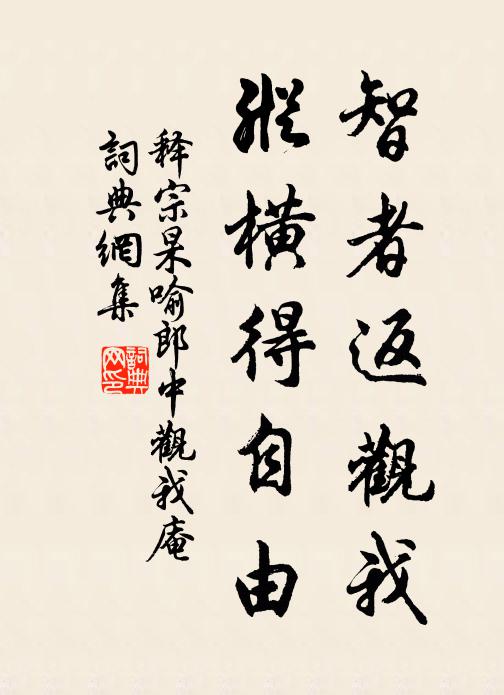 智者返觀我
縱橫得自由
释宗杲喻郎中觀我庵
詞典網集
詞典
网印